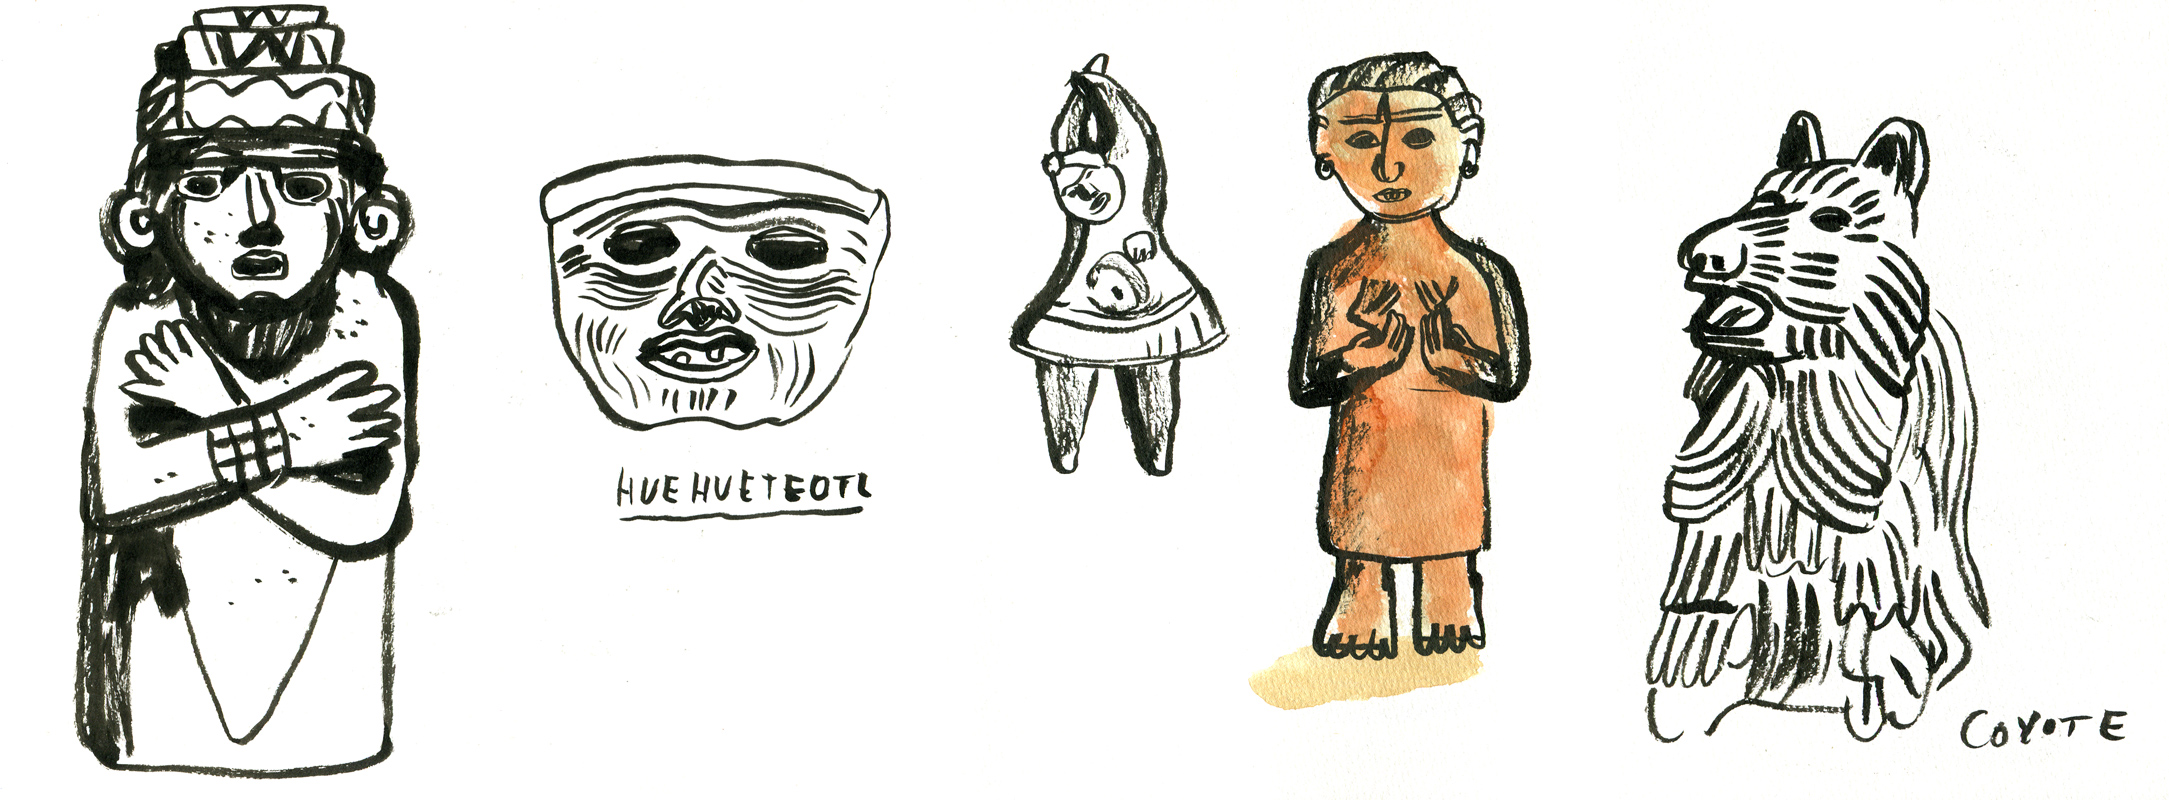 HUEHUETEOTL
COYOTE